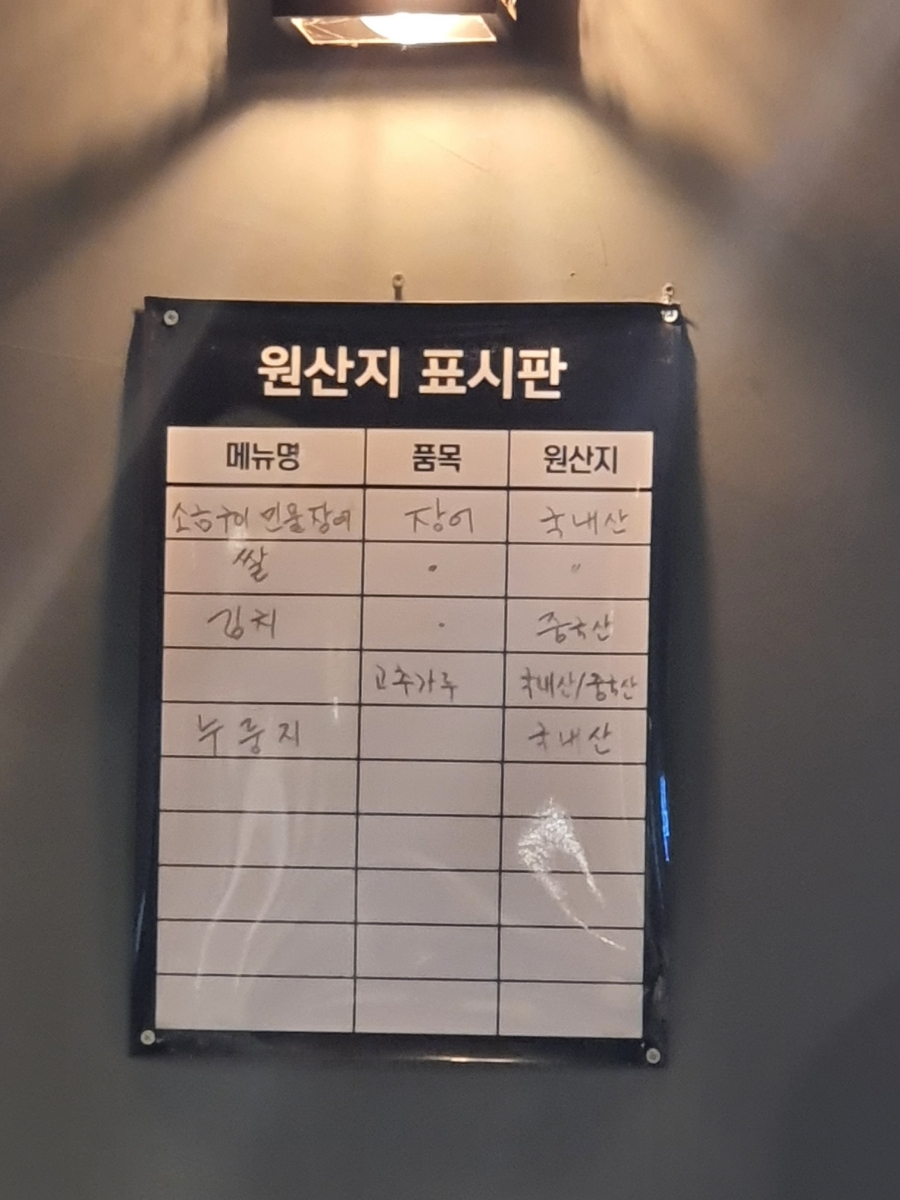 원산지 표시판
메뉴명 품목 원산지
소금구이 민물장어 장어 국내산
쌀 〃 〃
김치 · 중국산
고추가루 국내산/중국산
누룽지 국내산